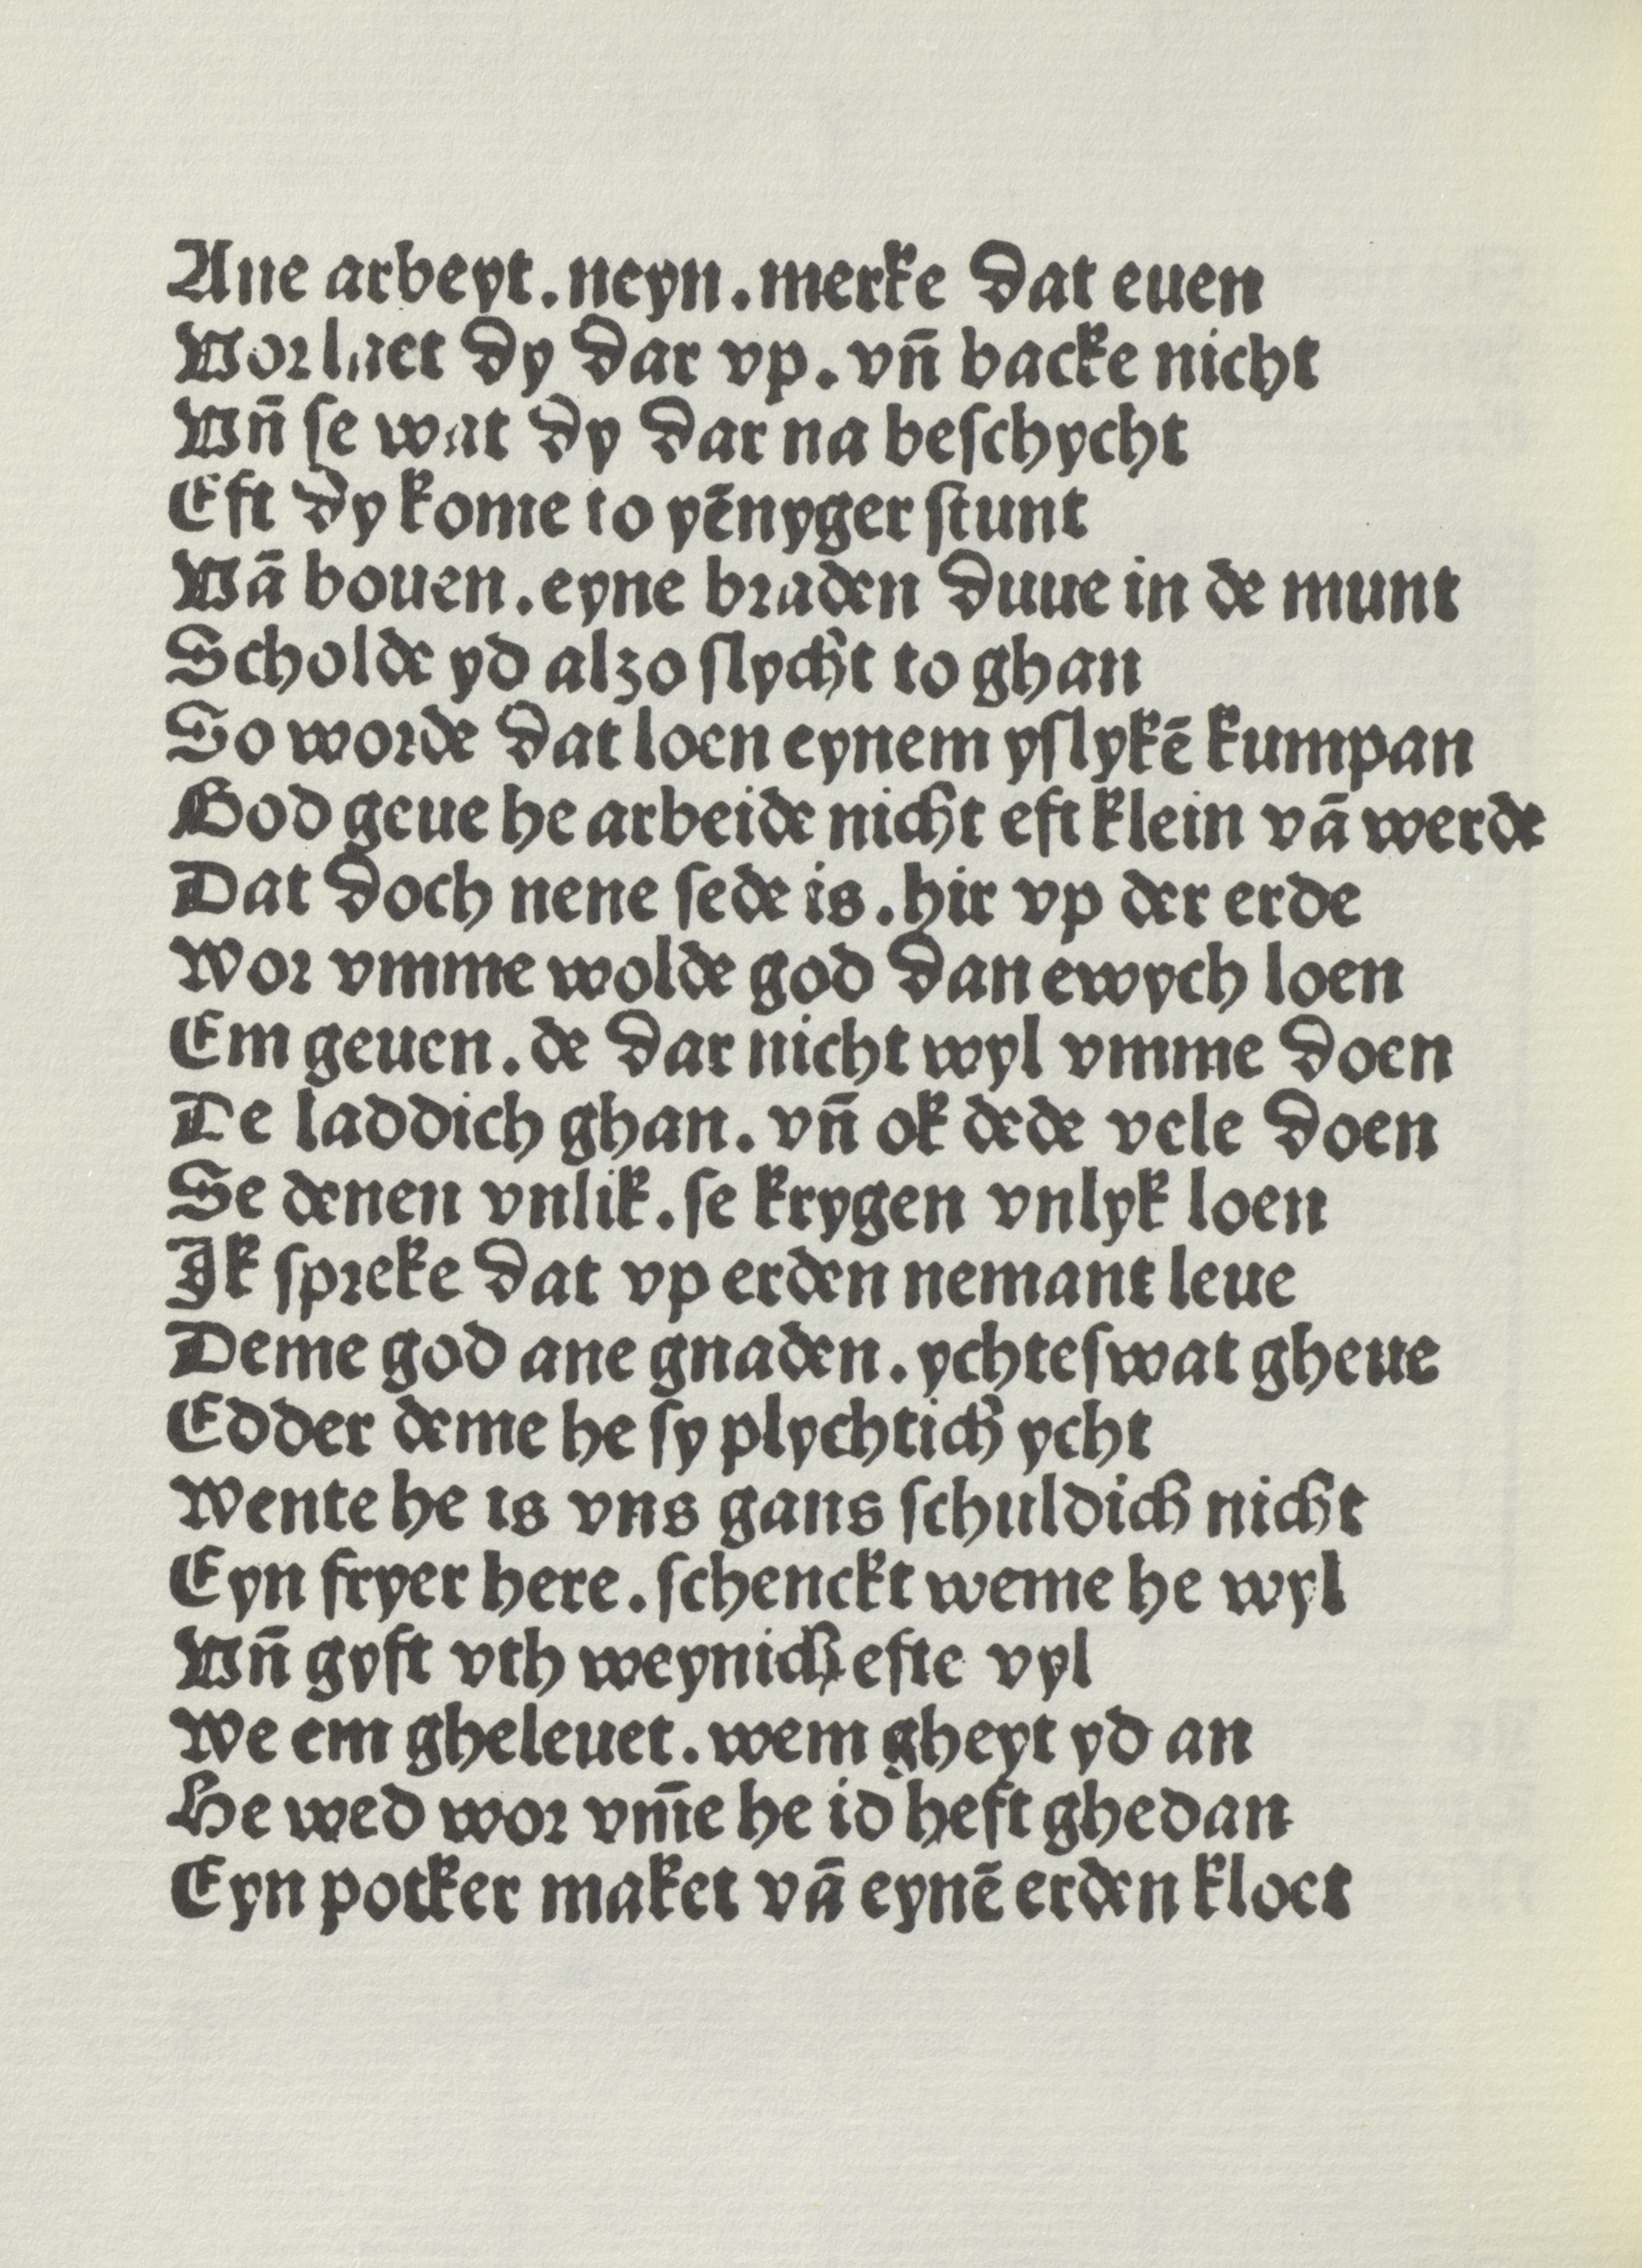 Ane arbeyt. neyn. merke dat euen
Vorlaet dy dar vp. vn̄ backe nicht
Vn̄ ſe wat dy dar na beſchycht
Eft dy kome to yēnyger ſtunt
Vā bouen. eyne braden duue in de munt
Scholde yd alzo ſlycht to ghan
So worde dat loen eynem yſlykē kumpan
God geue he arbeide nicht eft klein vā werde
Dat doch nene ſede is. hir vp der erde
Wor vmme wolde god dan ewych loen
Em geuen. de dar nicht wyl vmme doen
De laddich ghan. vn̄ ok dede vele doen
Se denen vnlik. ſe krygen vnlyk loen
Ik ſpreke dat vp erden nemant leue
Deme god ane gnaden. ychteſwat gheue
Edder deme he ſy plychtich ycht
Wente he is vns gans ſchuldich nicht
Eyn fryer here. ſchenckt weme he wyl
Vn̄ gyft vth weynich efte vyl
We em gheleuet. wem gheyt yd an
He wed wor vm̄e he id heft ghedan
Eyn potker maket vā eynē erden kloet